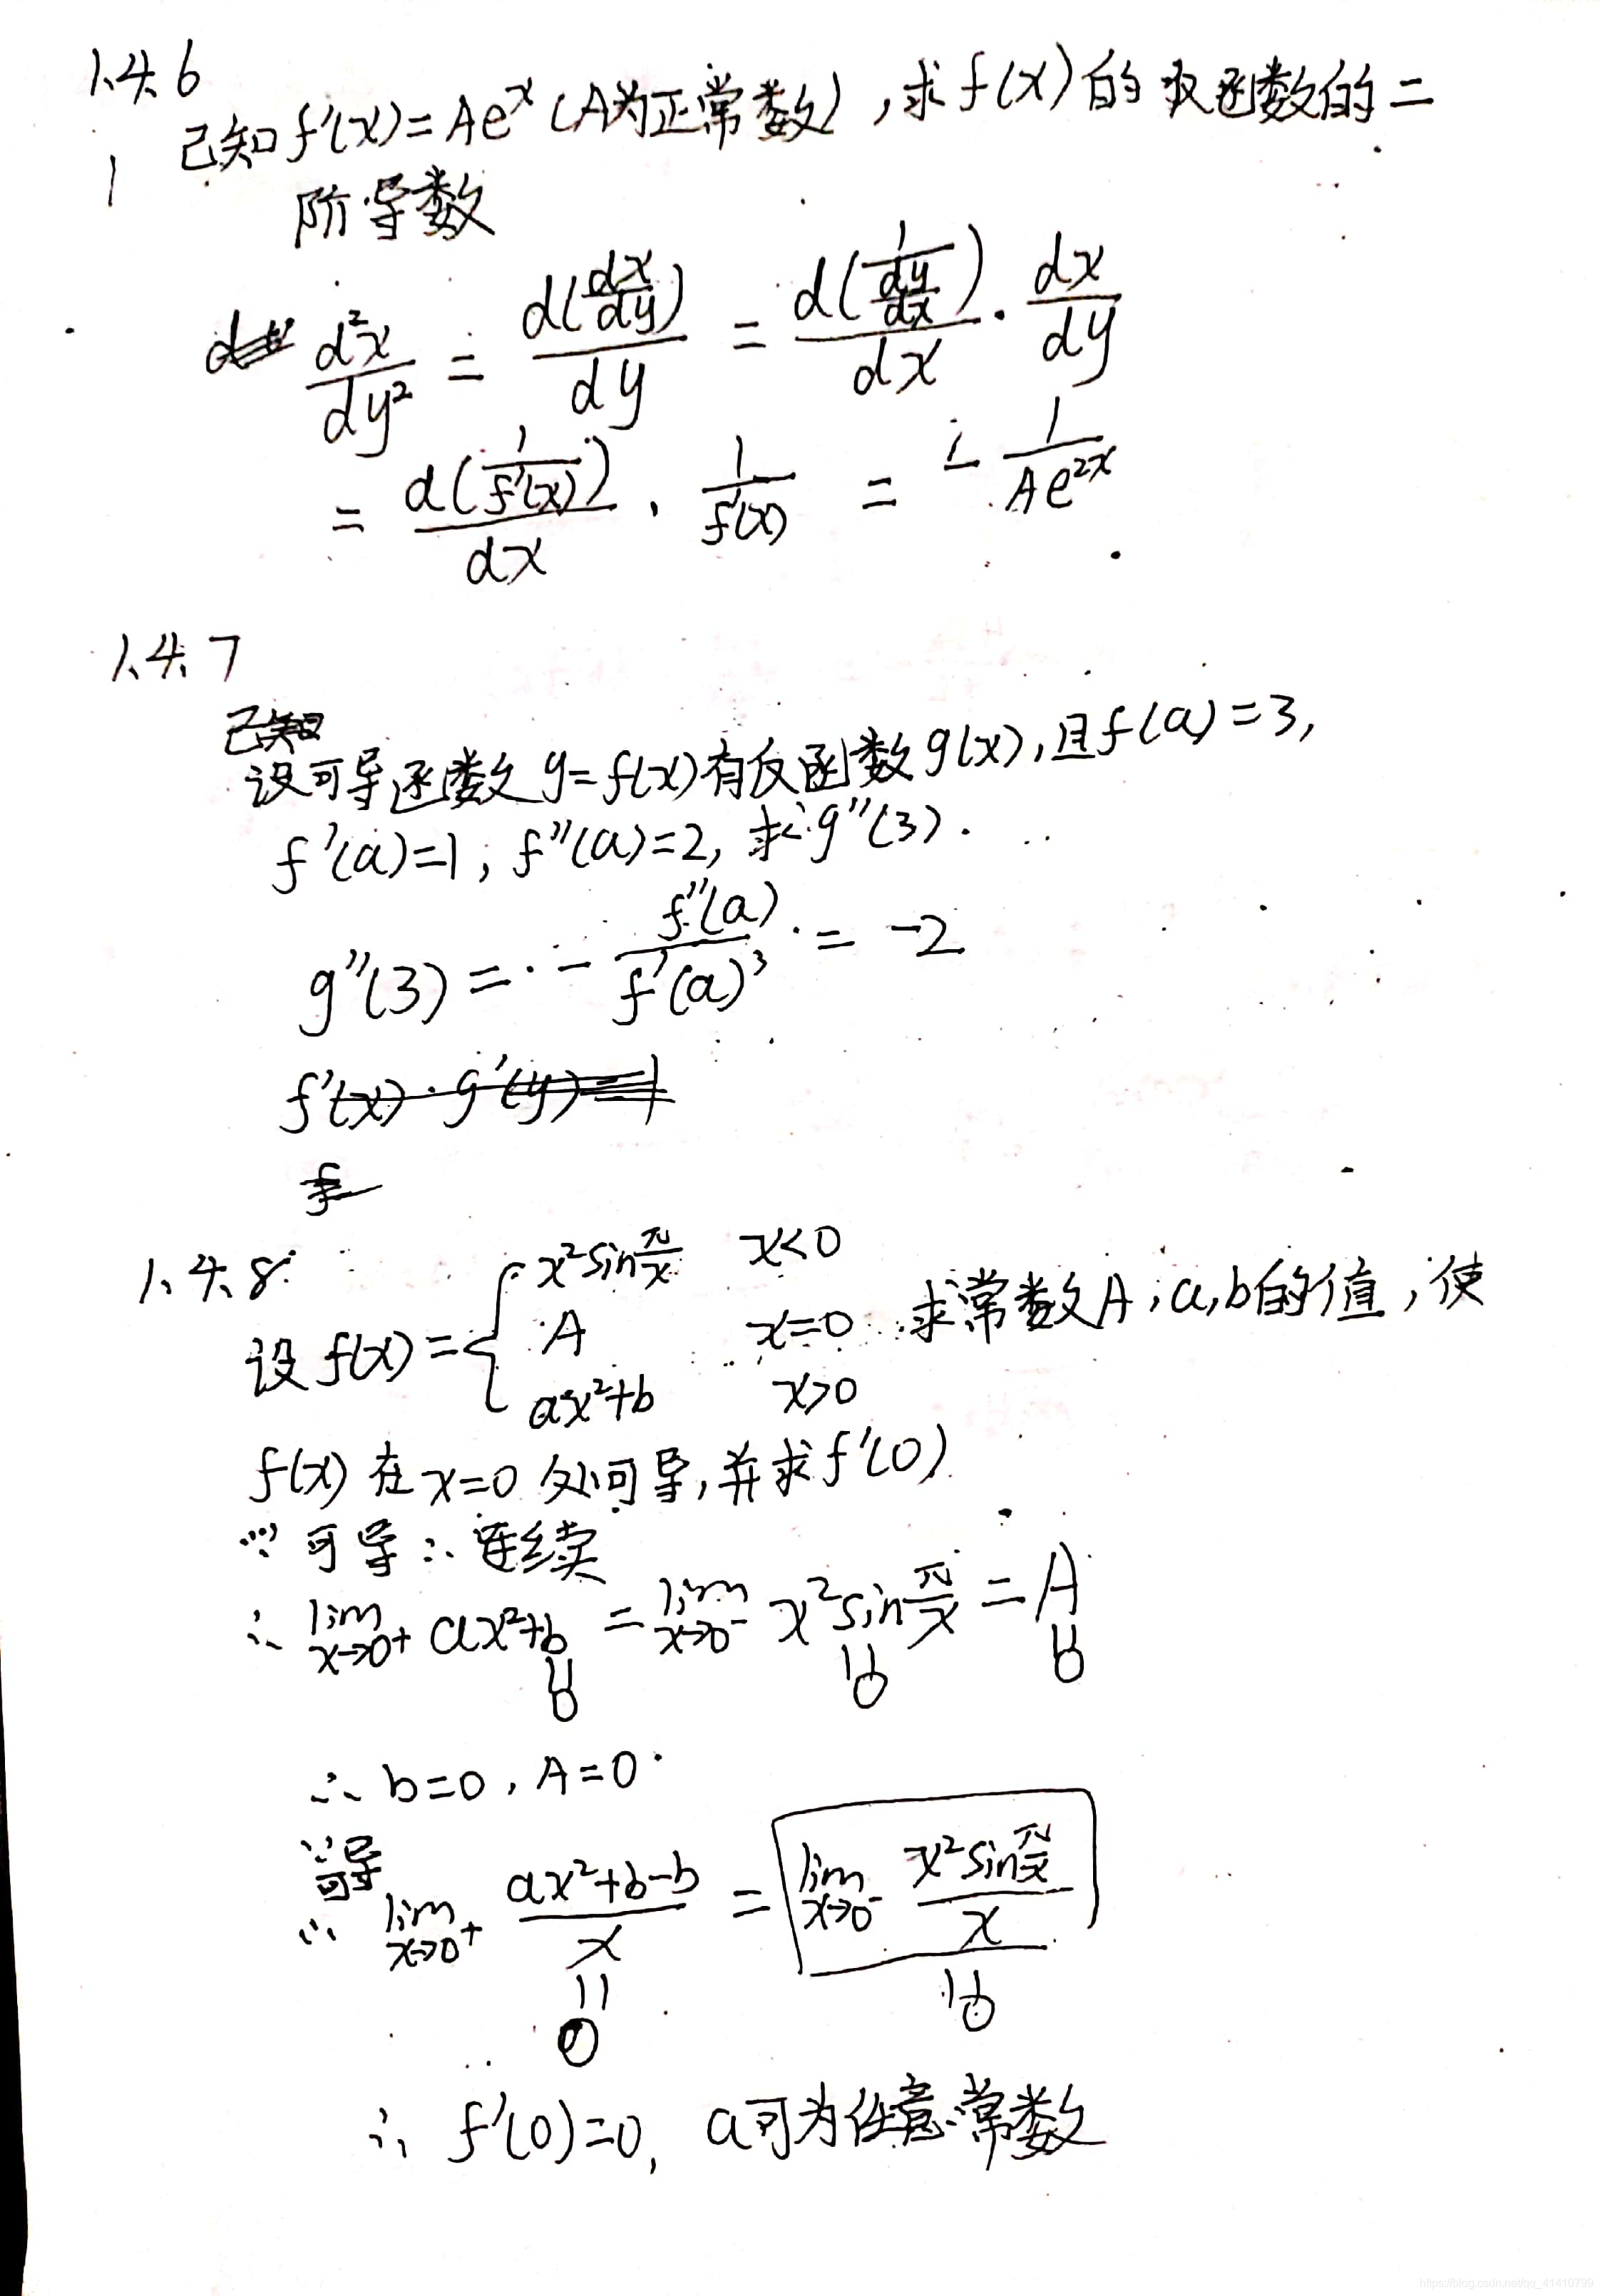 1.4.6
1 已知 f'(x)=Ae^x (A为正常数),求f(x)的反函数的二
阶导数
d²x/dy² = d(dx/dy)/dy = d(1/(dy/dx))/dx · dx/dy
= d(1/f'(x))/dx · 1/f'(x) = - 1/Ae^{2x}
1.4.7
已知
设可导函数 y=f(x)有反函数g(x),且f(a)=3,
f'(a)=1, f''(a)=2, 求g''(3).
g''(3) = - f''(a)/f'(a)³ = -2
f'(x)·g'(y)=1
f
1.4.8
设 f(x)= { x²sin π/x x<0
A x=0 求常数A,a,b的值,使
ax²+b x>0
f(x) 在 x=0 处可导,并求f'(0)
∵ 可导 ∴ 连续
∴ lim x→0+ ax²+b = lim x→0- x²sin π/x = A
|| b || 0 || 0
∴ b=0, A=0
∵可导
∴ lim x→0+ (ax²+b-b)/x = lim x→0- (x²sin π/x)/x
|| 0 || 0
∴ f'(0)=0, a可为任意常数
https://blog.csdn.net/qq_41410799